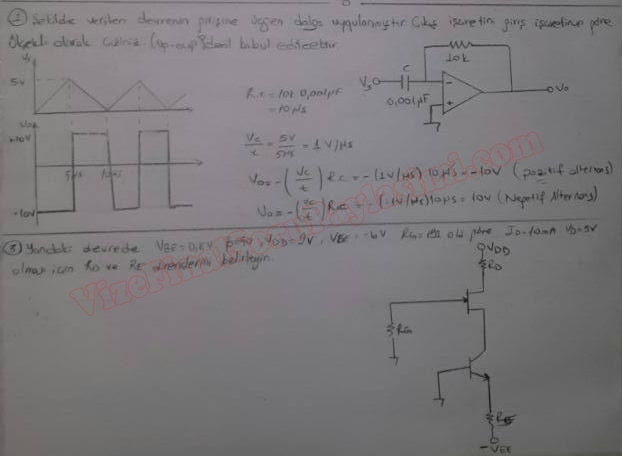 ② Şekilde verilen devrenin girişine üçgen dalga uygulanmıştır. Çıkış işaretini giriş işaretine göre
ölçekli olarak çiziniz. (op-amp ideal kabul edilecektir
Vi
5V
R.C = 10k 0,001µF
= 10 µs
Vs
C
0,001µF
10k
Vo
-
+
Vo
+10V
5µs
10µs
-10V
Vc/t = 5V/5µs = 1V/µs
Vo = -(Vc/t) R.C = -(1V/µs) 10µs = -10V (pozitif alternans)
Vo = -(Vc/t) R.C = -(-1V/µs) 10µs = 10V (Negatif Alternans)
③ Yandaki devrede VBE = 0,6V β=50, VDD = 9V, VEE = -6V RG = olduğuna göre ID = 10mA VD = 5V
olması için RD ve RE dirençlerini belirleyin.
VDD
RD
RG
RE
-VEE